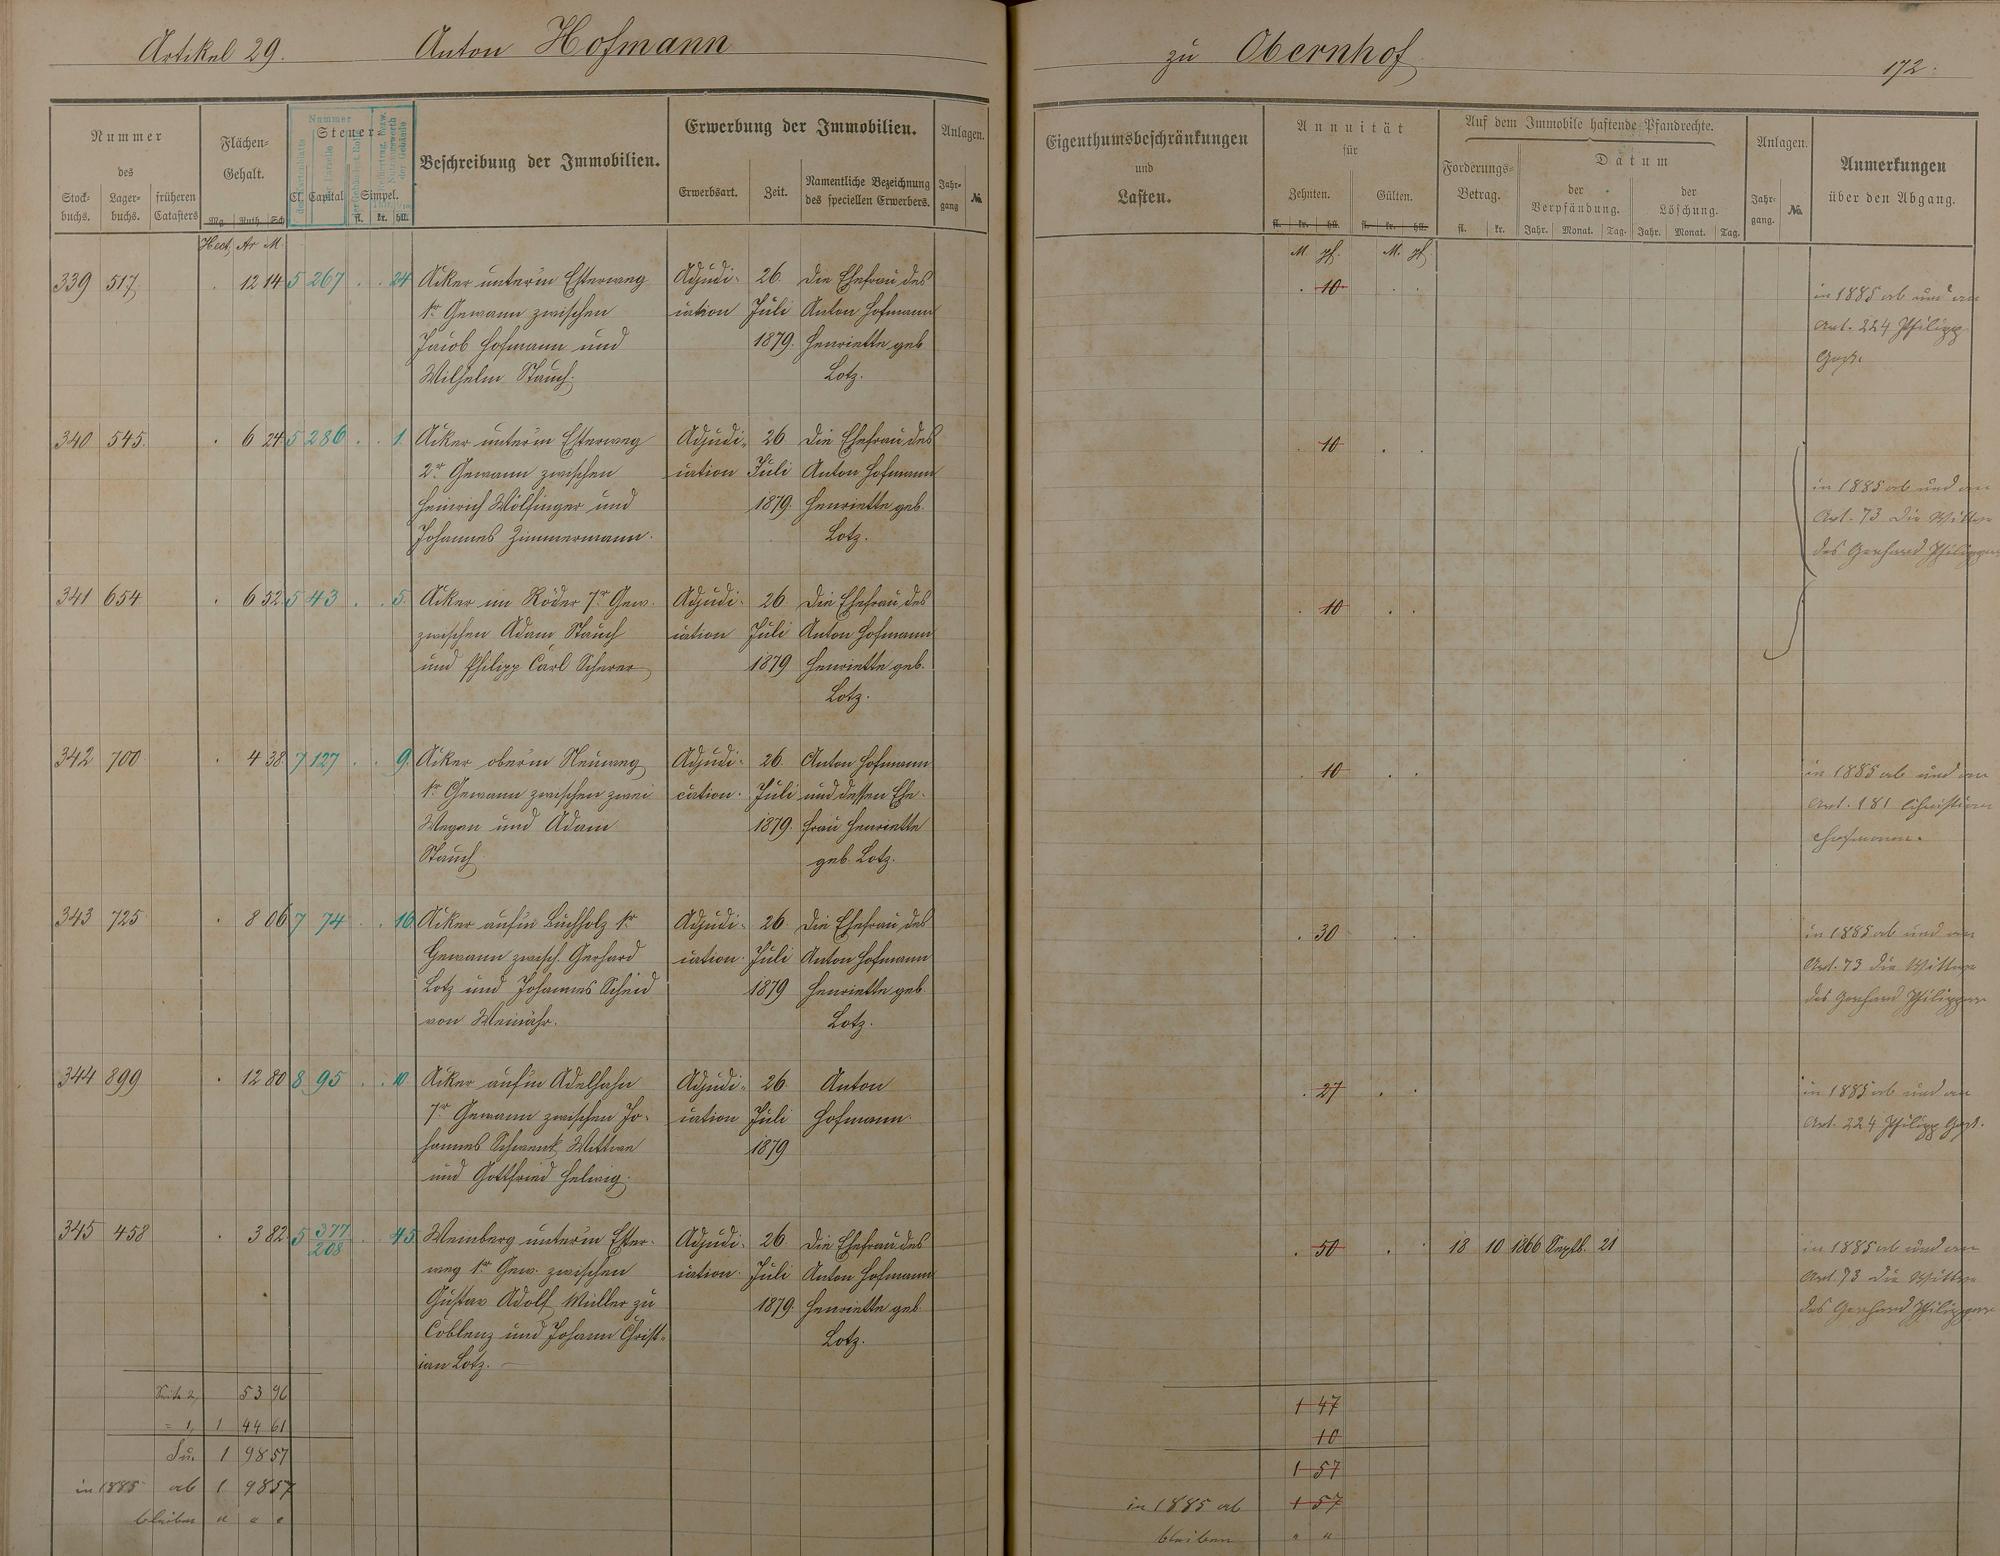 Artikel 29. Anton Hofmann
Nummer des
Stock-buchs. Lager-buchs. früheren Catasters
Flächen-Gehalt.
Mg. Ruth. Sch.
Steuer-
Cl. Capital Simpel.
fl. kr. hll.
Beschreibung der Immobilien.
Erwerbung der Immobilien.
Erwerbsart. Zeit. Namentliche Bezeichnung des speciellen Erwerbers.
Anlagen.
Jahr-gang №
Hect. Ar M.
339 517 . 12 14 5 267 . . 24 Acker unterm Esterweg Adjudi- 26. Die Ehefrau des
1r Gewann zwischen cation Juli Anton Hofmann
Jacob Hofmann und 1879. Henriette geb.
Wilhelm Stauch. Lotz.
340 545. . 6 24 5 286 . . 1. Acker unterm Esterweg Adjudi- 26. Die Ehefrau des
2r Gewann zwischen cation Juli Anton Hofmann
Heinrich Wölfinger und 1879. Henriette geb.
Johannes Zimmermann. Lotz.
341 654 . 6 52 5 43 . . 5. Acker im Röder 7r Gew. Adjudi- 26. Die Ehefrau des
zwischen Adam Stauch cation Juli Anton Hofmann
und Philipp Carl Scherer 1879 Henriette geb.
Lotz.
342 700 . 4 38 7 127 . . 9. Acker oberm Neuweg Adjudi- 26. Anton Hofmann
1r Gewann zwischen zwei cation. Juli und dessen Ehe-
Wegen und Adam 1879. frau Henriette
Stauch geb. Lotz.
343 725 . 8 06 7 74 . . 16. Acker aufm Buchholz 1r Adjudi- 26. Die Ehefrau des
Gewann zwisch. Gerhard cation. Juli Anton Hofmann
Lotz und Johannes Scheid 1879 Henriette geb.
von Weinähr. Lotz.
344 899 . 12 80 8 95 . . 10. Acker aufm Adelhahn Adjudi- 26. Anton
7r Gewann zwischen Jo- cation Juli Hofmann.
hannes Schwenk Wittwe 1879
und Gottfried Helwig.
345 458 . 3 82 5 377 . 45 Weinberg unterm Ester- Adjudi- 26. Die Ehefrau des
208
weg 1r Gew. zwischen cation. Juli Anton Hofmann
Gustav Adolf Müller zu 1879. Henriette geb.
Coblenz und Johann Christ- Lotz.
ian Lotz.
Seite 2, 53 96
= 1, 1 44 61
Su. 1 98 57
in 1885 ab 1 98 57
bleiben " " "
zu Obernhof 172.
Eigenthumsbeschränkungen und Lasten.
Annuität für
Zehnten. Gülten.
fl. kr. hll. fl. kr. hll.
Auf dem Immobile haftende Pfandrechte.
Forderungs-Betrag.
fl. kr.
Datum
der Verpfändung. der Löschung.
Jahr. Monat. Tag. Jahr. Monat. Tag.
Anlagen.
Jahr-gang. №
Anmerkungen über den Abgang.
M. pf. M. pf.
. 10 . . in 1885 ab und an
Art. 224 Philipp
. 10 . .
in 1885 ab und an
Art. 73 die Wittwe
des Gerhard
. 10 . .
. 10 . . in 1885 ab und an
Art. 181 Christian
Hofmann.
. 30 . . in 1885 ab und an
Art. 73 die Wittwe
des Gerhard
. 27 . . in 1885 ab und an
Art. 224 Philipp
. 50 . . 18 10 1866 Septb. 21 in 1885 ab und an
Art. 73 die Wittwe
des Gerhard
1 47
10
1 57
in 1885 ab 1 57
bleiben " "